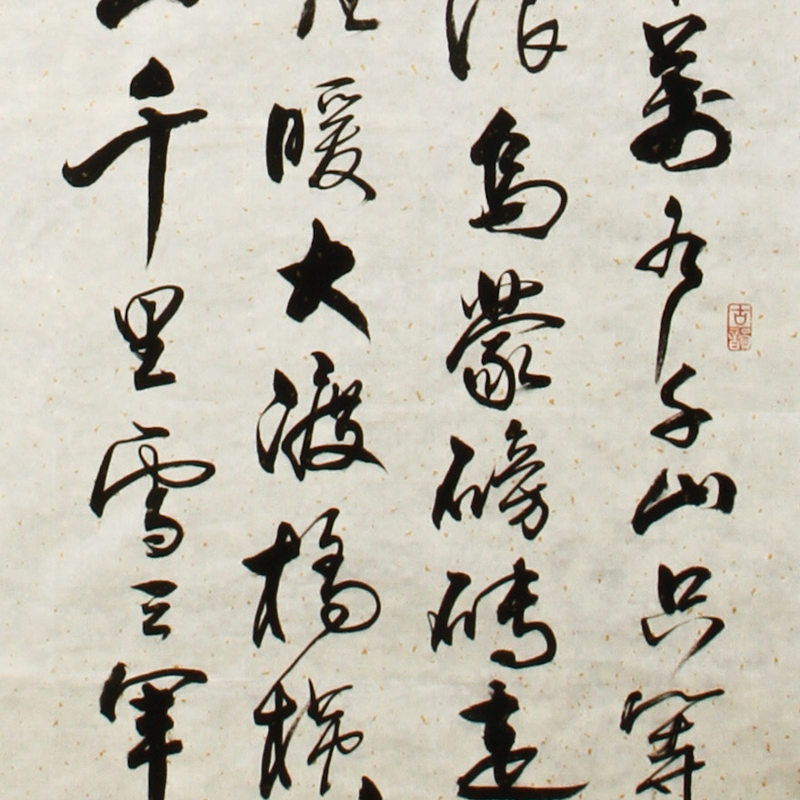 萬水千山只等
浪烏蒙磅礴走
暖大渡橋橫
千里雪三軍